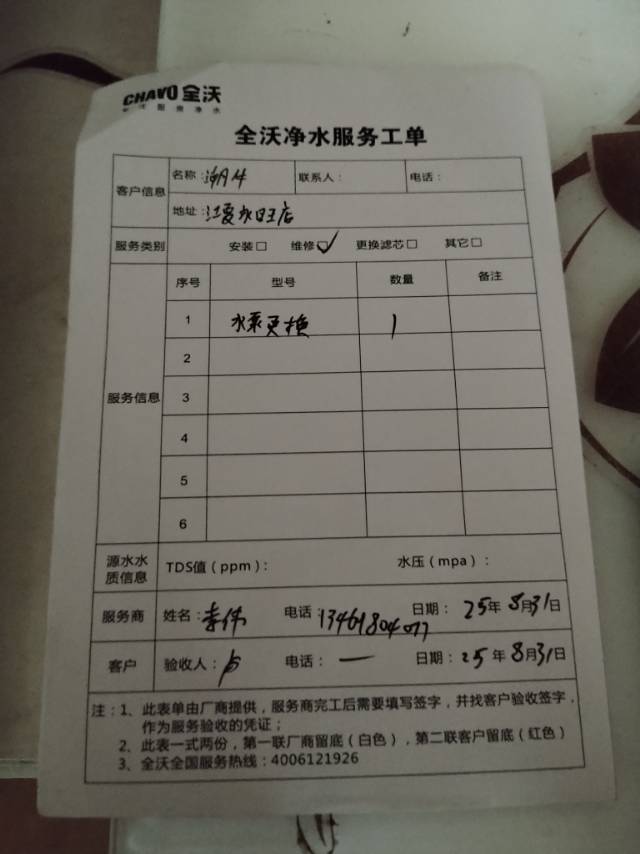 CHAVO 全沃
全沃净水服务工单
客户信息
名称：潮牛 联系人： 电话：
地址：江夏永旺店
服务类别 安装□ 维修☑ 更换滤芯□ 其它□
服务信息
序号 型号 数量 备注
1 水泵更换 1
2
3
4
5
6
源水水质信息 TDS值（ppm）： 水压（mpa）：
服务商 姓名：李伟 电话：13461804077 日期：25年8月31日
客户 验收人： 电话：— 日期：25年8月31日
注：1、此表单由厂商提供，服务商完工后需要填写签字，并找客户验收签字，
作为服务验收的凭证；
2、此表一式两份，第一联厂商留底（白色），第二联客户留底（红色）
3、全沃全国服务热线：4006121926